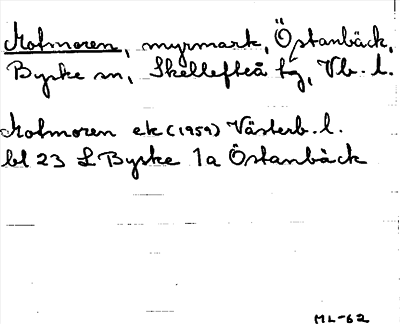 Kolmoren, myrmark, Östanbäck,
Byske sn, Skellefteå tg, Vb. l.
Kolmoren ek (1959) Västerb. l.
bl 23 L Byske 1a Östanbäck
ML-62